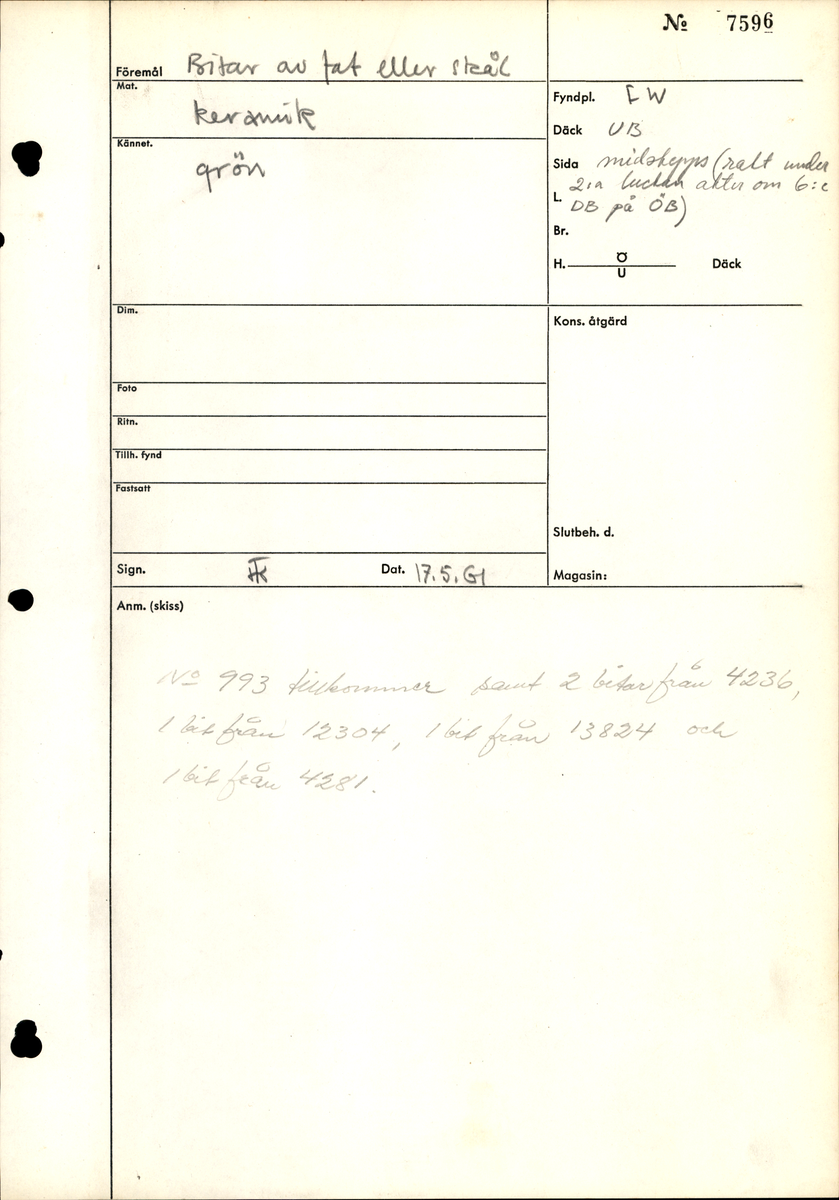 № 7596
Föremål Bitar av fat eller skål
Mat. keramik
Kännet. grön
Fyndpl. EW
Däck UB
Sida midskepps (rakt under
2:a luckan akter om 6:e
L. DB på ÖB)
Br.
H. Ö
U
Däck
Dim.
Kons. åtgärd
Foto
Ritn.
Tillh. fynd
Fastsatt
Slutbeh. d.
Sign. Dat. 17.5.61
Magasin:
Anm. (skiss)
No 993 tillkommer samt 2 bitar från 4236,
1 bit från 12304, 1 bit från 13824 och
1 bit från 4281.